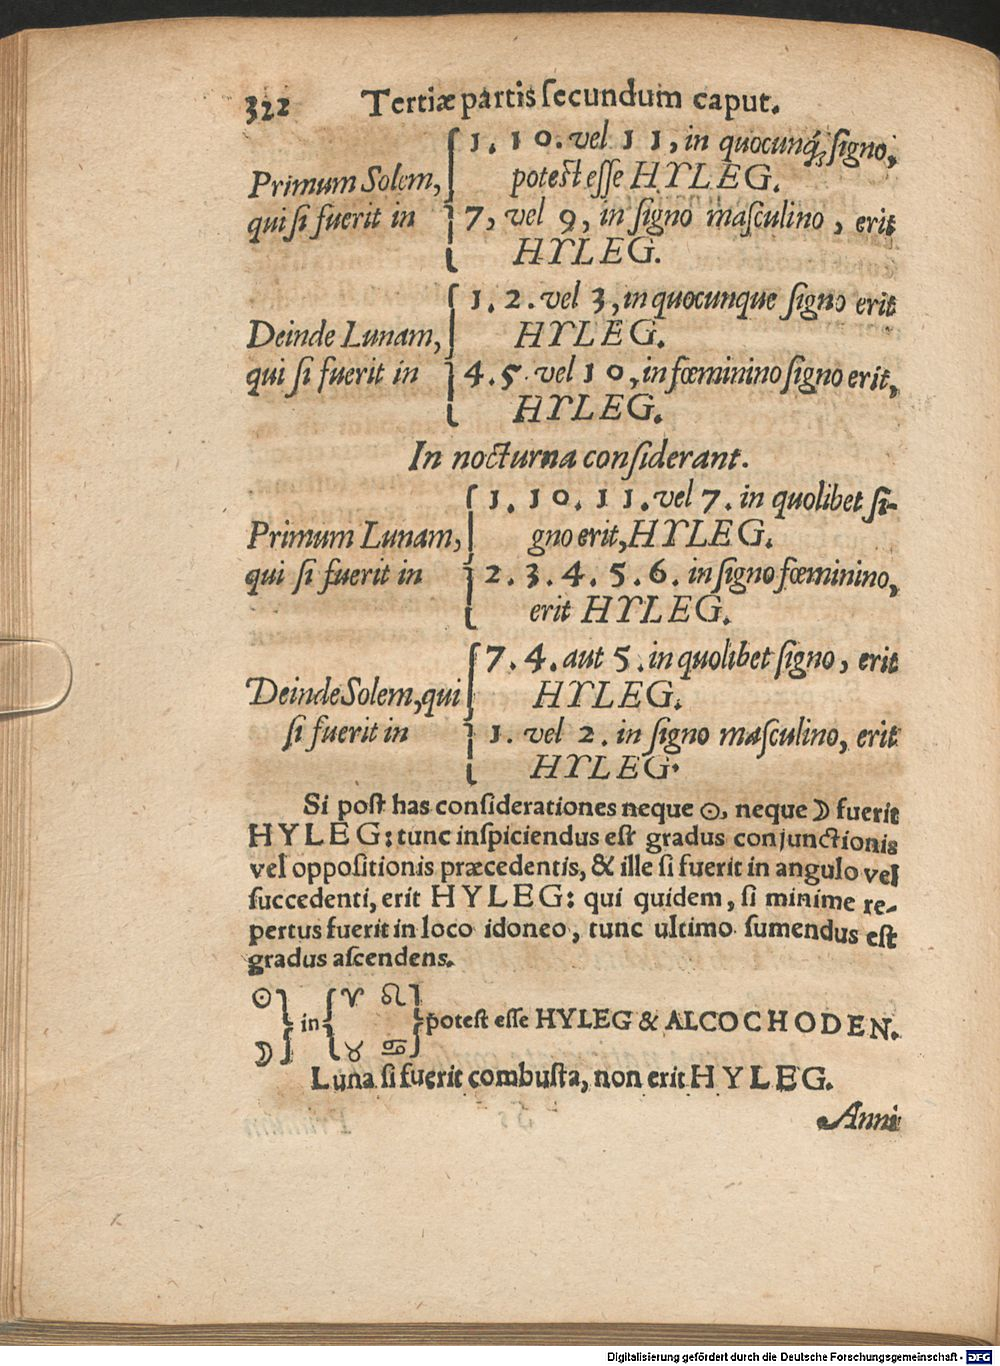 322 Tertiæ partis ſecundum caput.
1. 10. vel 11, in quocunq́; ſigno,
Primum Solem, poteſt eſſe HYLEG.
qui ſi fuerit in 7, vel 9, in ſigno maſculino, erit
HYLEG.
1. 2. vel 3, in quocunque ſigno erit
Deinde Lunam, HYLEG.
qui ſi fuerit in 4. 5. vel 10, in fœminino ſigno erit,
HYLEG.
In nocturna conſiderant.
1. 10. 11. vel 7. in quolibet ſi-
Primum Lunam, gno erit, HYLEG.
qui ſi fuerit in 2. 3. 4. 5. 6. in ſigno fœminino,
erit HYLEG.
7. 4. aut 5. in quolibet ſigno, erit
Deinde Solem, qui HYLEG.
ſi fuerit in 1. vel 2. in ſigno maſculino, erit
HYLEG.
Si poſt has conſiderationes neque ☉, neque ☽ fuerit
HYLEG: tunc inſpiciendus eſt gradus conjunctionis
vel oppoſitionis præcedentis, & ille ſi fuerit in angulo vel
ſuccedenti, erit HYLEG: qui quidem, ſi minime re-
pertus fuerit in loco idoneo, tunc ultimo ſumendus eſt
gradus aſcendens.
☉ ♈ ♌
in poteſt eſſe HYLEG & ALCOCHODEN.
☽ ♉ ♋
Luna ſi fuerit combuſta, non erit HYLEG.
Anni
Digitalisierung gefördert durch die Deutsche Forschungsgemeinschaft - DFG